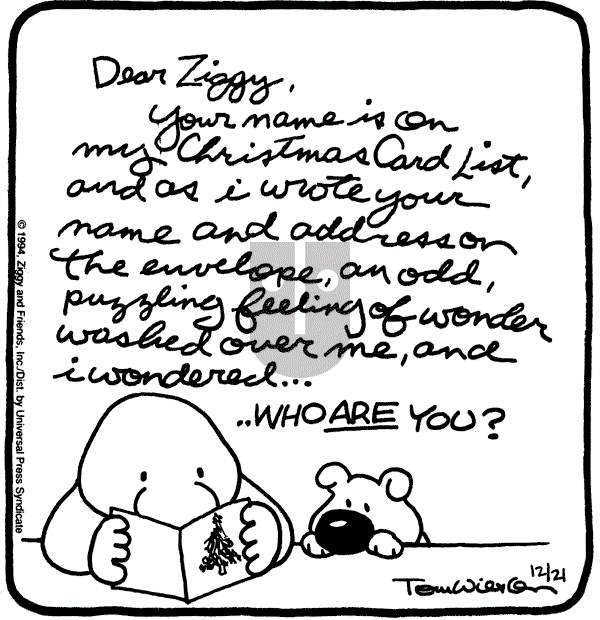 Dear Ziggy,
Your name is on
my Christmas Card List,
and as i wrote your
name and address on
the envelope, an odd,
puzzling feeling of wonder
washed over me, and
i wondered...
..WHO ARE YOU?
© 1994, Ziggy and Friends, Inc./Dist. by Universal Press Syndicate
Tom Wilson
12/21